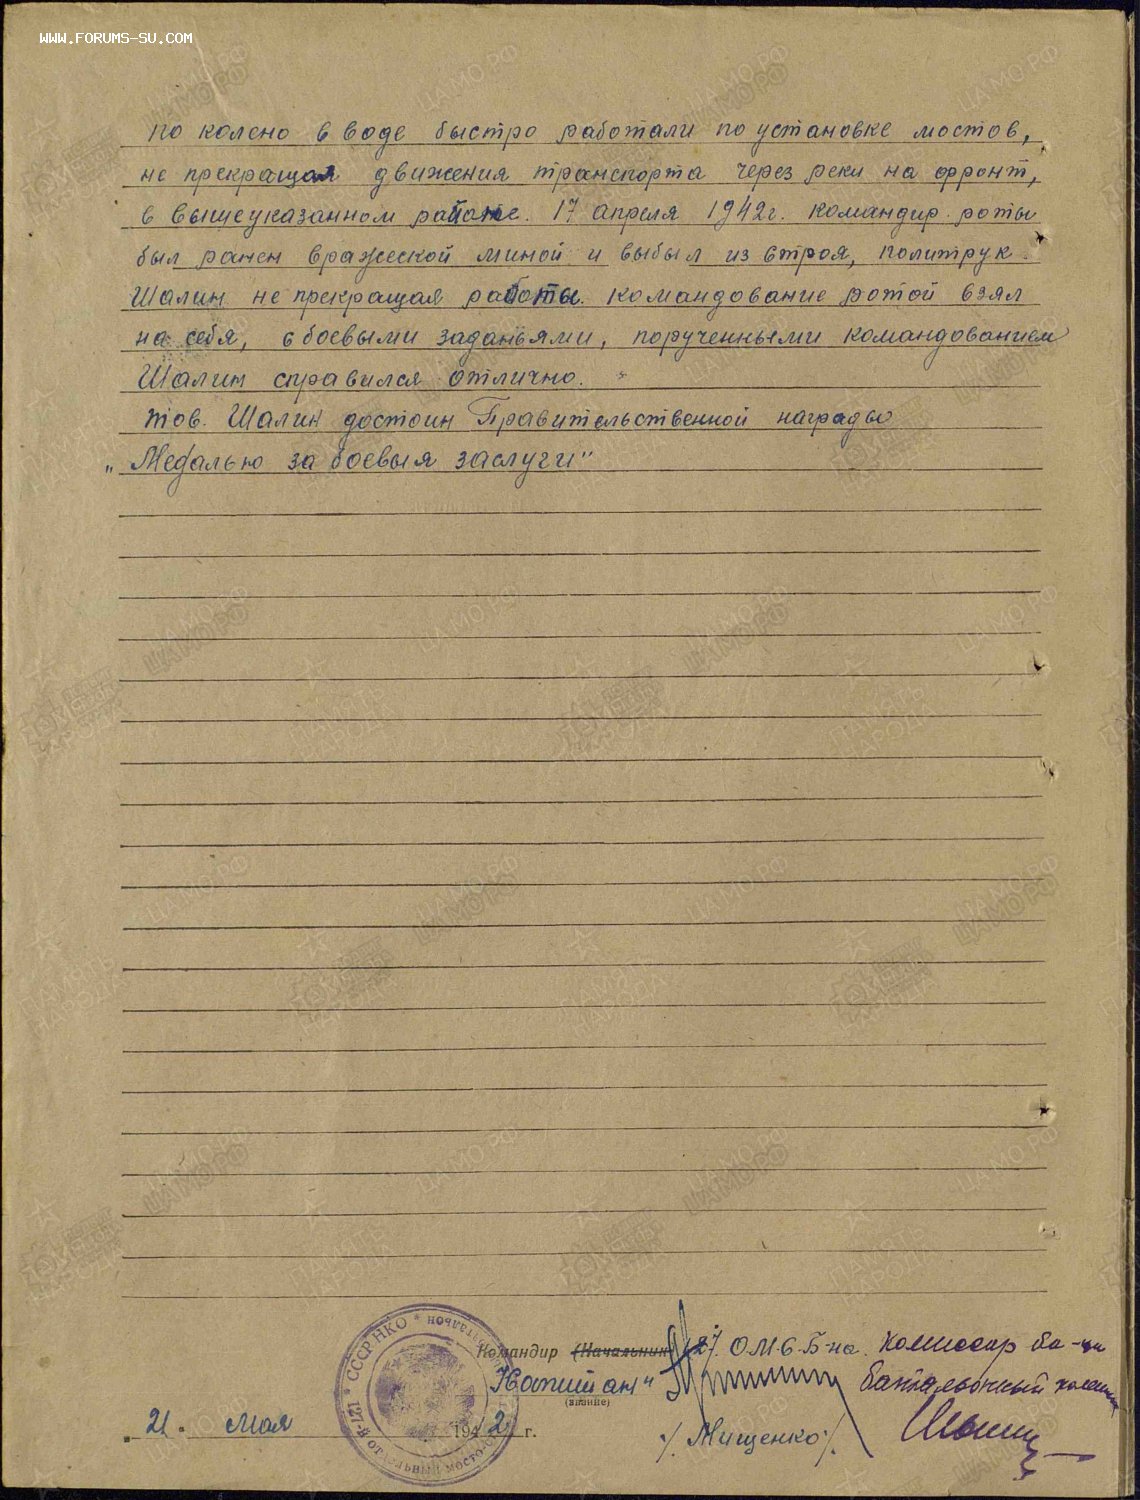 WWW.FORUMS-SU.COM
по колено в воде быстро работали по установке мостов,
не прекращая движения транспорта через реки на фронт,
в вышеуказанном районе. 17 апреля 1942г. командир роты
был ранен вражеской миной и выбыл из строя, политрук
Шалин не прекращая работы командование ротой взял
на себя, с боевыми заданьями, порученными командованием
Шалин справился отлично.
тов. Шалин достоин Правительственной награды
„Медалью за боевыя заслуги"
Командир (Начальник) 127 ОМСБ-на. комиссар ба-на
Капитан" батальонный комиссар
(звание)
/Мищенко/.
„21" мая 1942 г.
СССР НКО * 127-й отдельный мосто-